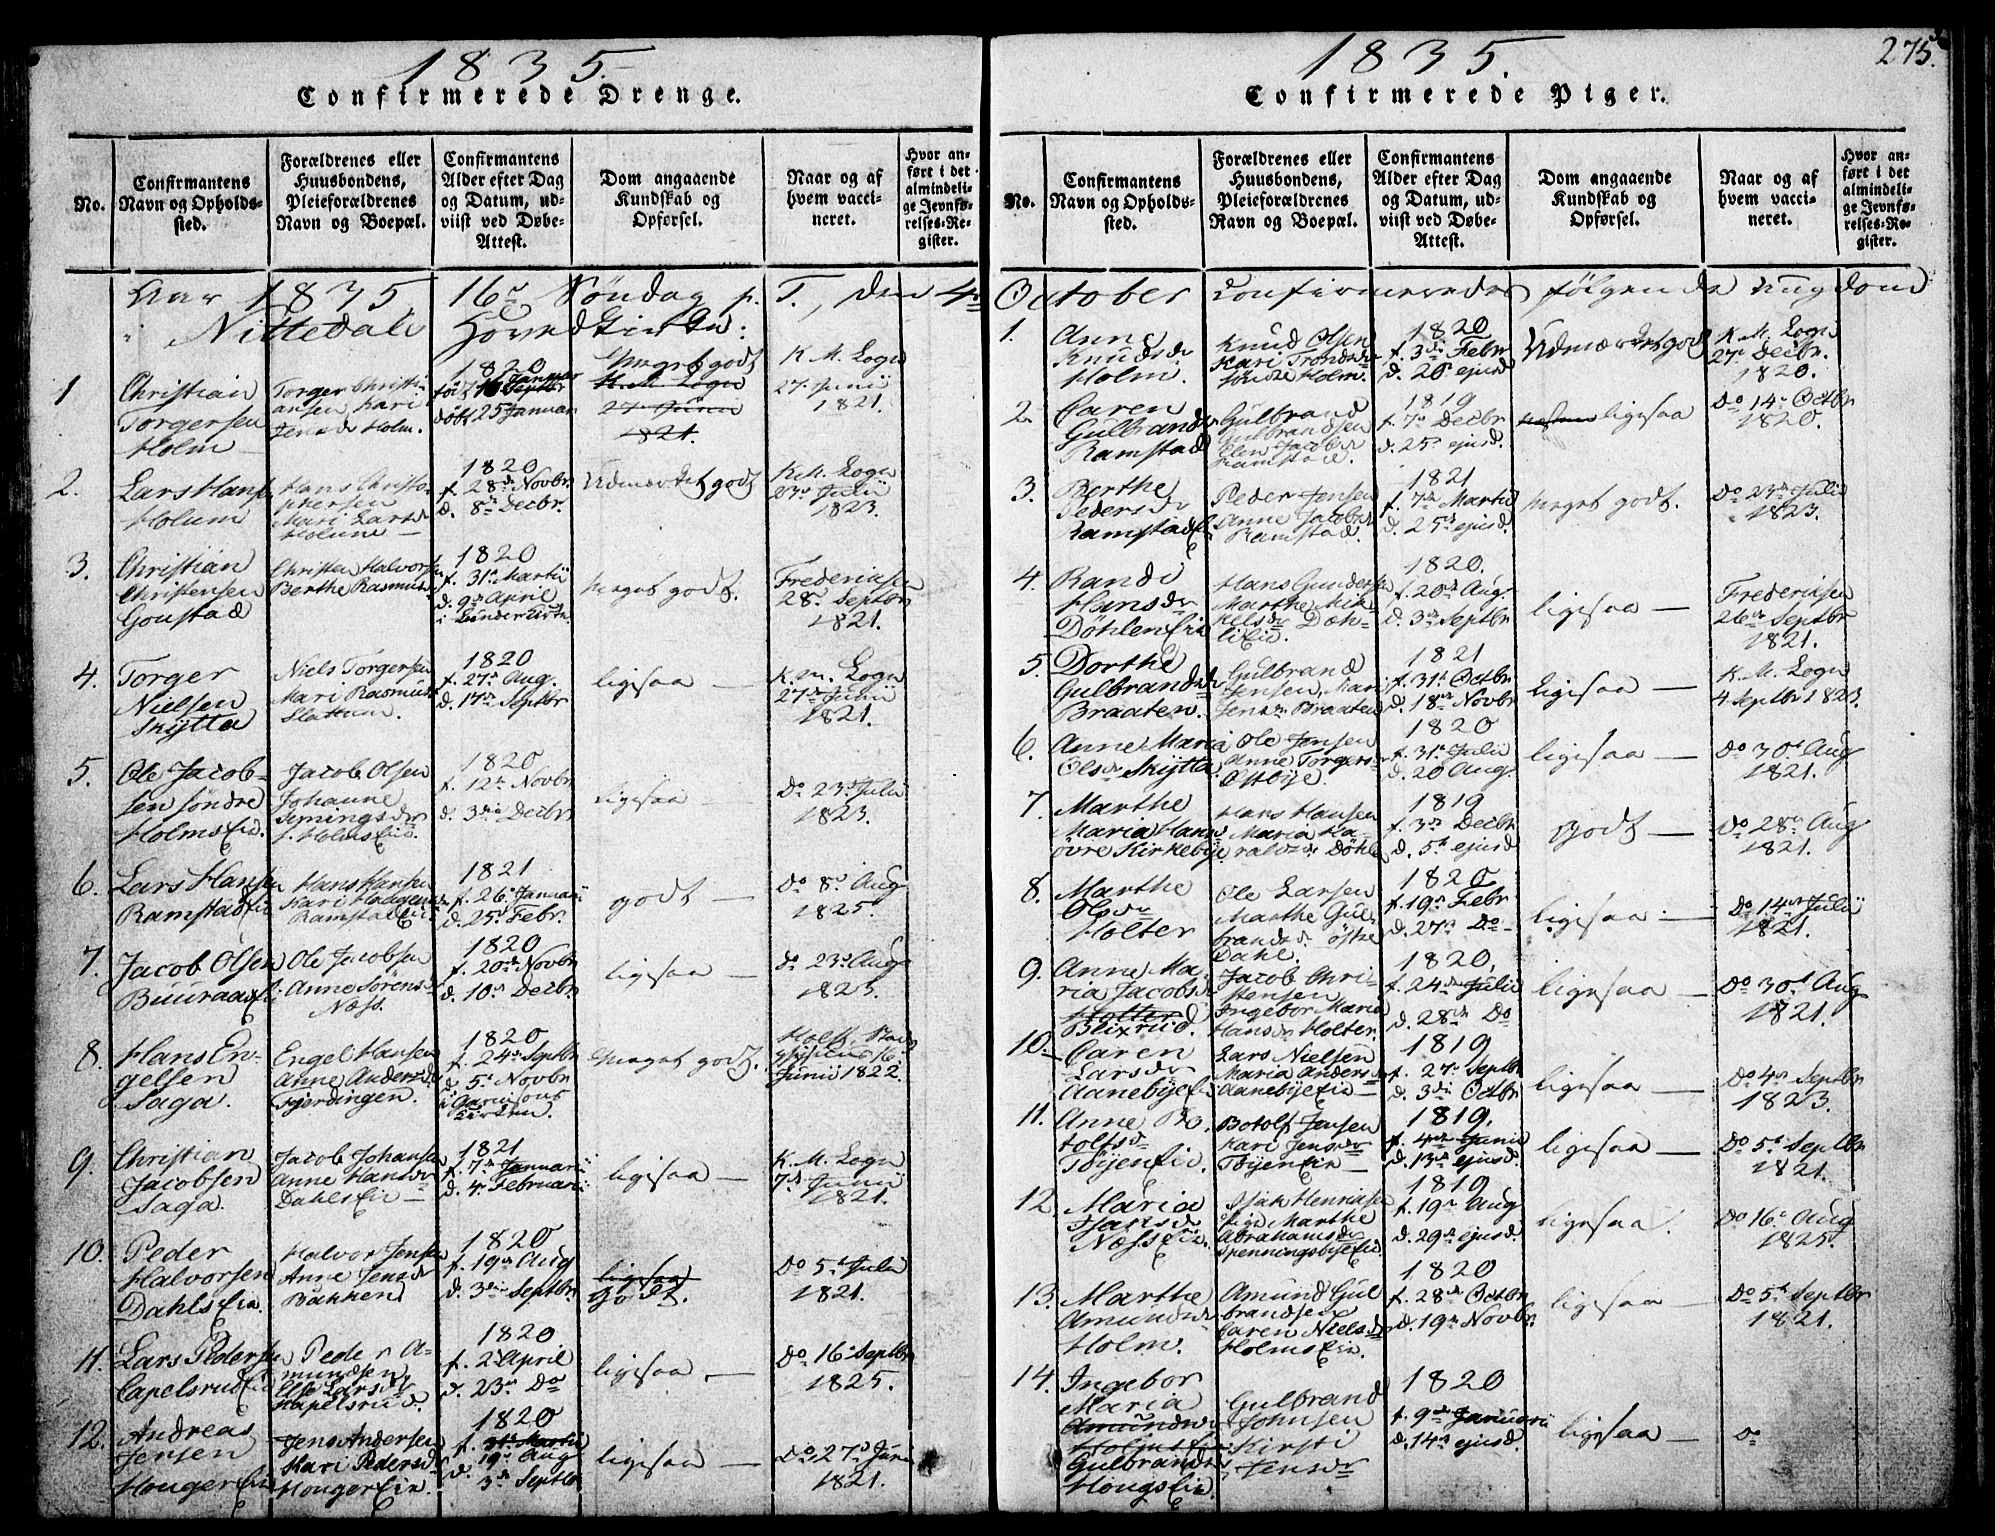 1835.
Confirmerede Drenge.
No.
Confirmantens
Navn og Opholds-
sted.
Forældrenes eller
Huusbondens,
Pleieforældrenes
Navn og Boepæl.
Confirmantens
Alder efter Dag
og Datum, ud-
viist ved Døbe-
Attest.
Dom angaaende
Kundskab og
Opførsel.
Naar og af
hvem vacci-
neret.
Hvor an-
ført i det
almindeli-
ge Jevnfø-
relses-Re-
gister.
Aar 1835, 16de Söndag p. T., den 4de
i Nittedals Hovedkirke:
1
Christian
Torgersen
Holm
Torger Christi-
ansen Kari
Jensdr Holm.
1820
född 16 Januar
döbt 25 Januar
Meget godt
K. M. Logn
27. Junii
1821.
K. M. Logn
27. Junii
1821.
2.
Lars Hans
Holum
Hans Christo-
phersen
Mari Larsdr
Holum
1820
f. 28de Novbr
d. 8de Decbr.
Udmærket godt
K. M. Logn
23de Julii
1823.
3.
Christian
Christensen
Goustad
Christen Halvorsen
Berthe Rasmusdr
1820
f. 31te Martii
d. 9de April
i Lunder Kirke
Meget godt.
Frederiksen
28. Septbr
1821.
4.
Torger
Nielsen
Skytta
Niels Torgersen
Mari Rasmusdr
Slattum.
1820
f. 27de Aug.
d. 17de Septbr
ligesaa
K. M. Logn
27de Junii
1821.
5.
Ole Jacob-
sen söndre
Holms Eie.
Jacob Olsen
Johanne
Semingsdr
s. Holms Eie.
1820
f. 12te Novbr
d. 3die Decbr
ligesaa
Do 23de Julii
1823.
6.
Lars Hansen
Ramstad Eie
Hans Hansen
Kari
Ramstad Eie.
1821
f. 26de Januarii
d. 25de Febr.
godt
Do 8de Aug
1825.
7.
Jacob Olsen
Buuraas Eie
Ole Jacobsen
Anne Sörensdr
Næss.
1820
f. 20de Novbr
d. 10de Decbr.
ligesaa
do 23de Aug
1823.
8.
Hans En-
gelsen
Saga.
Engel Hansen
Anne Andersdr
Fjerdingen.
1820
f. 24de Septbr
d. 5te Novbr
i Garnisons
Kirken.
Meget godt.
16
Junii 1822.
9.
Christian
Jacobsen
Saga.
Jacob Johansen
Anne Hansdr
Dahls Eie
1821
f. 7de Januarii
d. 4de Februarii
ligesaa
K. M. Logn
7de Junii
1821.
10.
Peder
Halvorsen
Dahls Eie.
Halvor Jensen
Anne Jensdr
Bakken
1820
f. 19de Aug
d. 3die Septbr.
ligesaa
Godt.
Do 5te Julii
1821.
11.
Lars Pedersen
Capelsrud Eie
Peder A-
mundsen
Else Larsdr
Kapelsrud.
1820
f. 2 April
d. 23de Do
ligesaa
Do 16de Septbr
1825.
12.
Andreas
Jensen
Houger Eie
Jens Andersen
Kari Pedersdr
Houger Eie.
1820
f. 31te Martii
19de Aug
d. 3de Septbr
ligesaa
Do 27de Juni
1821.
275.
1835.
Confirmerede Piger.
No.
Confirmantens
Navn og Opholds-
sted.
Forældrenes eller
Huusbondens,
Pleieforældrenes
Navn og Boepæl.
Confirmantens
Alder efter Dag
og Datum, ud-
viist ved Døbe-
Attest.
Dom angaaende
Kundskab og
Opførsel.
Naar og af
hvem vacci-
neret.
Hvor an-
ført i det
almindeli-
ge Jevnfø-
relses-Re-
gister.
October confirmeredes fölgende Ungdom
1.
Anne
Knudsdr
Holm.
Knud Olsen
Kari Trondsdr
söndre Holm.
1820
f. 3die Febr
d. 20de ejusd.
Udmærket god
K. M. Logn
27de Decbr.
1820.
2.
Caren
Gulbrandsdr
Ramstad
Gulbrand
Gulbrandsen
Elen Jacobsdr
Ramstad.
1819
f. 7de Decbr
d. 25de ejusd.
ligesaa
Do 14de Octbr
1820.
3.
Berthe
Pedersdr
Ramstad Eie
Peder Jensen
Anne Jacobsdr
Ramstad.
1821
f. 7de Martii
d. 25de ejusd.
Meget godt.
Do 23de Julii
1823.
4.
Randi
Hansdr
Döhlen Eie
Hans Gundersen
Marthe Mik-
kelsdr Döh-
li Eie.
1820.
f. 20de Aug.
d. 3die Septbr
ligesaa
Frederiksen
26de Septbr
1821.
5.
Dorthe
Gulbrandsdr
Braaten.
Gulbrand
Jensen, Mari
Jensdr Braaten
1821
f. 31te Octbr
d. 18de Novbr
ligesaa
K. M. Logn
4 Septbr 1823.
6.
Anne Maria
Olsdr Skytta
Ole Jensen
Anne Torgers-
Östbye.
1820
f. 31te Julii
d. 20 Aug.
ligesaa
Do 30te Aug
1821.
7.
Marthe
Maria Hansdr
övre Kirkebye
Hans Hansen
Maria Ha-
raldsdr Döhl
1819
f. 3die Decbr
d. 5te ejusd
godt
Do 28de Aug
1821.
8.
Marthe
Olsdr
Holter
Ole Larsen
Marthe Gul-
brandsdr östre
Dahl.
1820
f. 19de Febr
d. 27de Do
ligesaa
Do 14de Julii
1821.
9.
Anne Ma-
ria Jacobsdr
Holter
Blixrud.
Jacob Chri-
stensen
Ingebor Maria
Hansdr Holter.
1820.
f. 24de Julii
d. 28de Do
ligesaa
Do 30te Aug
1821.
10.
Caren
Larsdr
Aanebye Eie
Lars Nielsen
Maria Andersdr
Aanebye Eie
1819
f. 27de Septbr
d. 3die Octbr
ligesaa
Do 4de Septbr
1823.
11.
Anne Bo-
tolfsdr
Töyen Eie.
Botolf Jensen
Kari Jensdr
Töyen Eie
1819.
f. 4de Junii
d. 13de ejusd.
ligesaa
Do 5te Septbr
1821.
12.
Maria
Isaksdr
Næss Eie.
Isak Henriksen
Marthe
Abrahamsdr
Spenningsbye Eie
1819
f. 19de Aug
d. 29de ejusd.
ligesaa.
Do 16de Aug
1825.
13.
Marthe
Amundsdr
Holm.
Amund Gul-
brandsen
Caren Nielsdr
Holms Eie.
1820
f. 28de Octbr
d. 19de Novbr.
ligesaa
Do 5te Septbr
1821.
14.
Ingebor
Maria
Amundsdr
Gulbrandsdr
Hougs Eie.
Gulbrand
Johnsen
Kirsti
Jensdr
1820
f. 9de Januarii
d. 14de ejusd.
ligesaa
Do